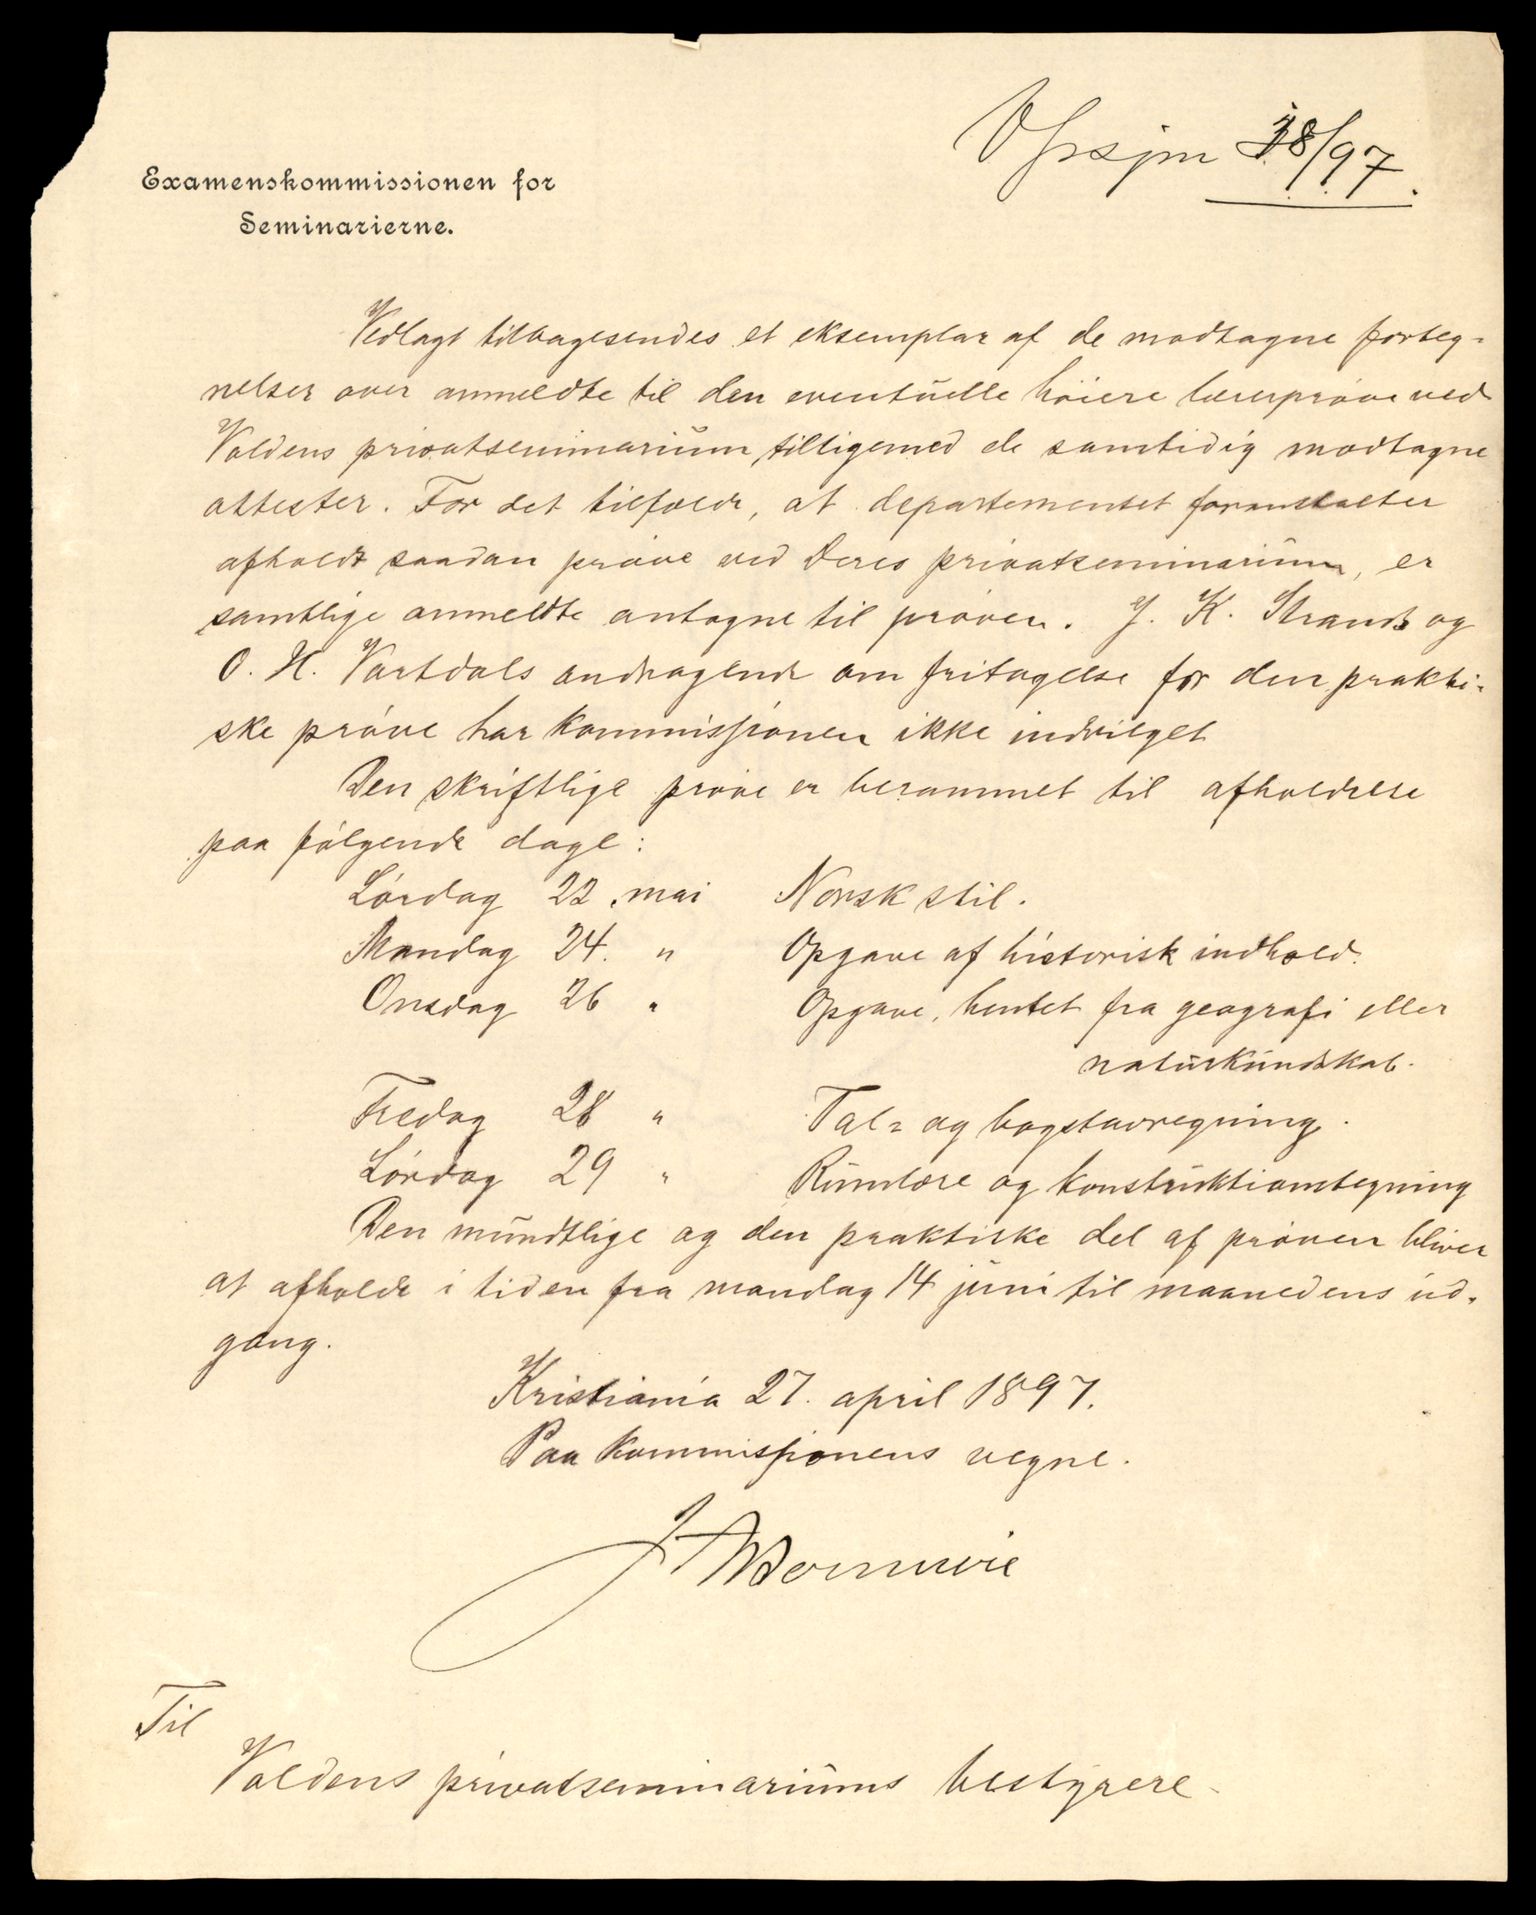 Examenskommissionen for
Seminarierne.
Vprsjm 38/97.
Vedlagt tilbagesendes et eksemplar af de modtagne forteg-
nelser over anmeldte til den eventuelle høiere lærerprøve ved
Voldens privatseminarium, tilligemed de samtidig modtagne
attester. For det tilfælde, at departementet foranstalter
afholdt saadan prøve ved Deres privatseminarium, er
samtlige anmeldte antagne til prøven. J. K. Strands og
O. H. Vartdals andragende om fritagelse for den prakti-
ske prøve har kommissionen ikke indvilget
Den skriftlige prøve er berammet til afholdelse
paa følgende dage:
Lørdag 22. mai Norsk stil.
Mandag 24. " Opgave af historisk indhold.
Onsdag 26 " Opgave, hentet fra geografi eller
naturkundskab.
Fredag 28 " Tal- og bogstavregning.
Lørdag 29 " Rumlære og konstruktionstegning
Den mundtlige og den praktiske del af prøven bliver
at afholde i tiden fra mandag 14 juni til maanedens ud-
gang.
Kristiania 27. april 1897.
Paa kommissionens vegne.
Til
Voldens privatseminariums bestyrere